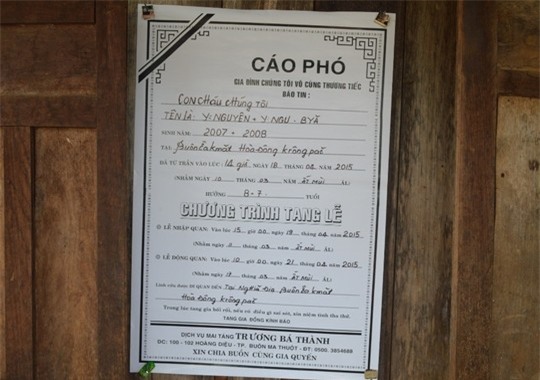 CÁO PHÓ
GIA ĐÌNH CHÚNG TÔI VÔ CÙNG THƯƠNG TIẾC
BÁO TIN :
CON CHÁU CHÚNG TÔI
TÊN LÀ: Y NGUYÊN + Y NGU - BYĂ
SINH NĂM: 2007 + 2008
TẠI: Buôn Ea kmăt Hòa Đông Krông pă
ĐÃ TỪ TRẦN VÀO LÚC : 14 giờ NGÀY 18 THÁNG 04 NĂM 2015
(NHẰM NGÀY 10 THÁNG 03 NĂM ẤT MÙI ÂL)
HƯỞNG 8 + 7 TUỔI
CHƯƠNG TRÌNH TANG LỄ
LỄ NHẬP QUAN: Vào lúc 15 giờ 00, ngày 19 tháng 04 năm 2015
(Nhằm ngày 11 tháng 03 năm ẤT MÙI ÂL)
LỄ ĐỘNG QUAN: Vào lúc 10 giờ 00 ngày 21 tháng 04 năm 2015
(Nhằm ngày 13 tháng 03 năm ẤT MÙI ÂL)
Linh cữu được DI QUAN ĐẾN Tại Nghĩa Địa Buôn Ea kmăt
Hòa Đông Krông pă
Trong lúc tang gia bối rối, nếu có điều gì sai sót, xin niệm tình tha thứ.
TANG GIA ĐỒNG KÍNH BÁO
DỊCH VỤ MAI TÁNG TRƯƠNG BÁ THÀNH
ĐC: 100 - 102 HOÀNG DIỆU - TP. BUÔN MA THUỘT - ĐT: 0500. 3854688
XIN CHIA BUỒN CÙNG GIA QUYẾN